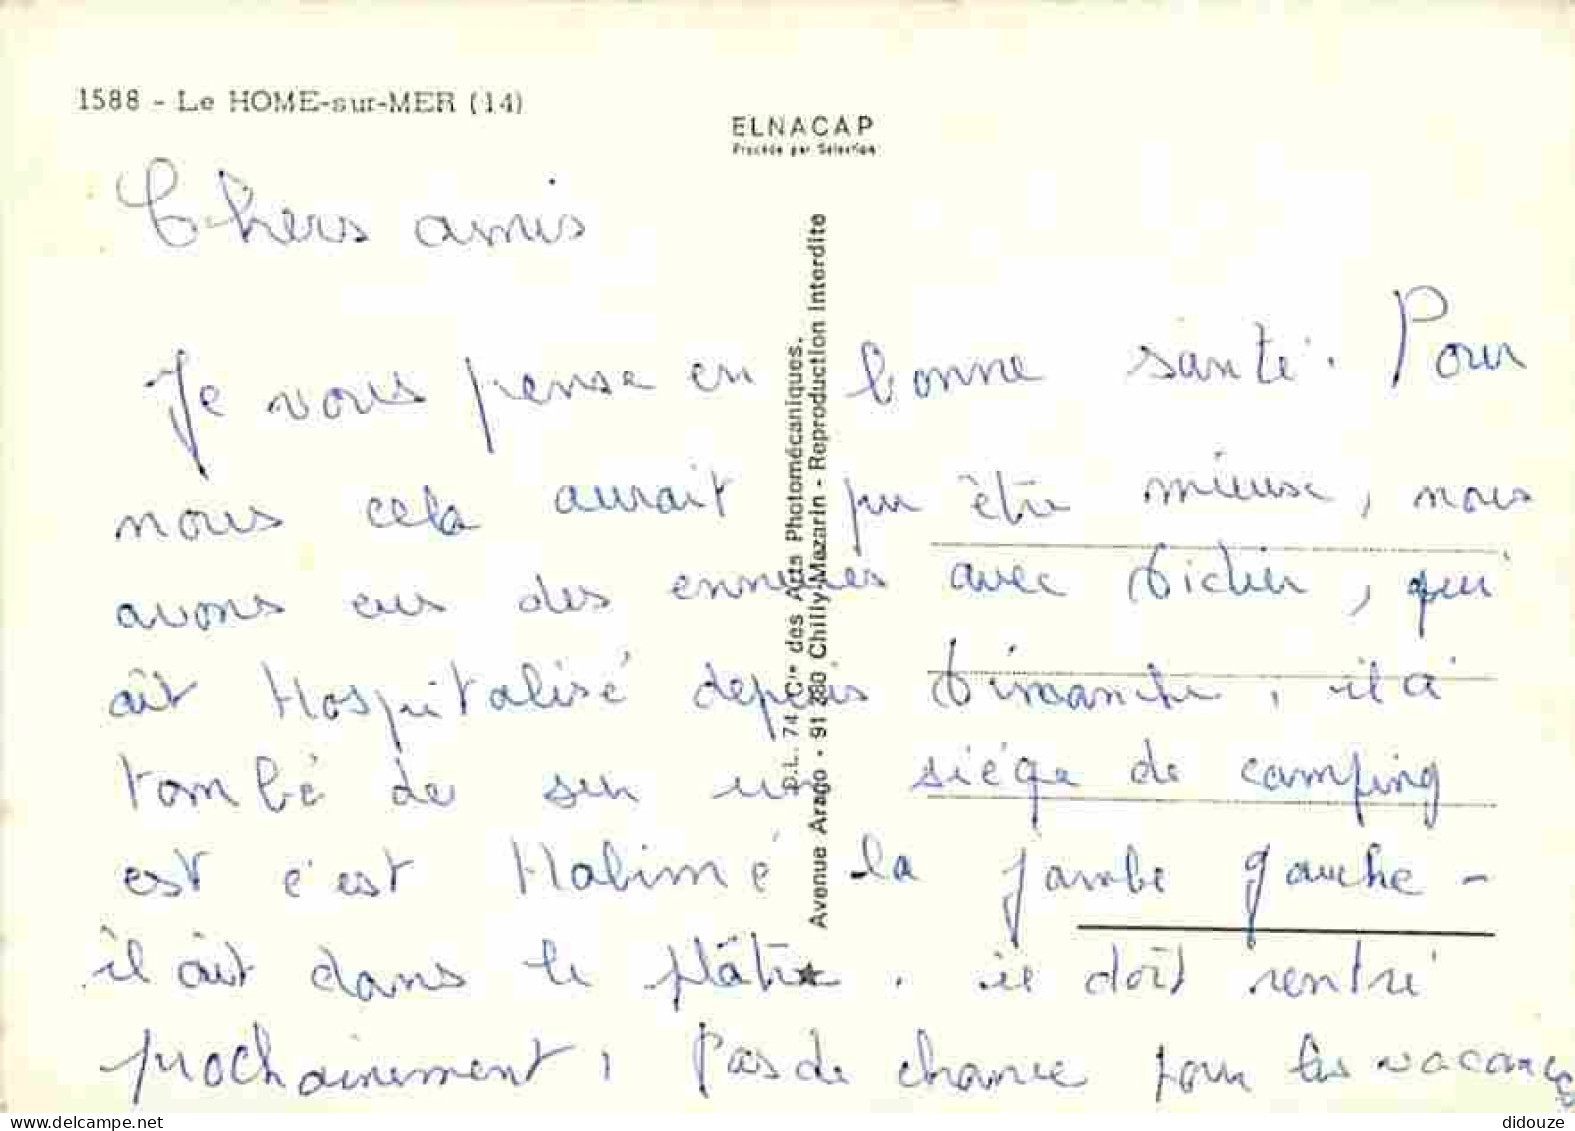 1588 - Le HOME-sur-MER (14)
ELNACAP
Procédé par Sélection
Chers amis
Je vous pense en bonne santé. Pour
nous cela aurait pu être mieuse, nous
avons eus des ennuies avec Didier, qui
ait Hospitalisé depuis Dimanche, il a
tombé de sur un siége de camping
est c'est Habimé la jambe gauche -
il ait dans le plâtre. il doit rentré
prochainement, Pas de chance pour les vacances
D.L. 74 Cie des Arts Photomécaniques.
Avenue Arago - 91 380 Chilly-Mazarin - Reproduction Interdite
didouze